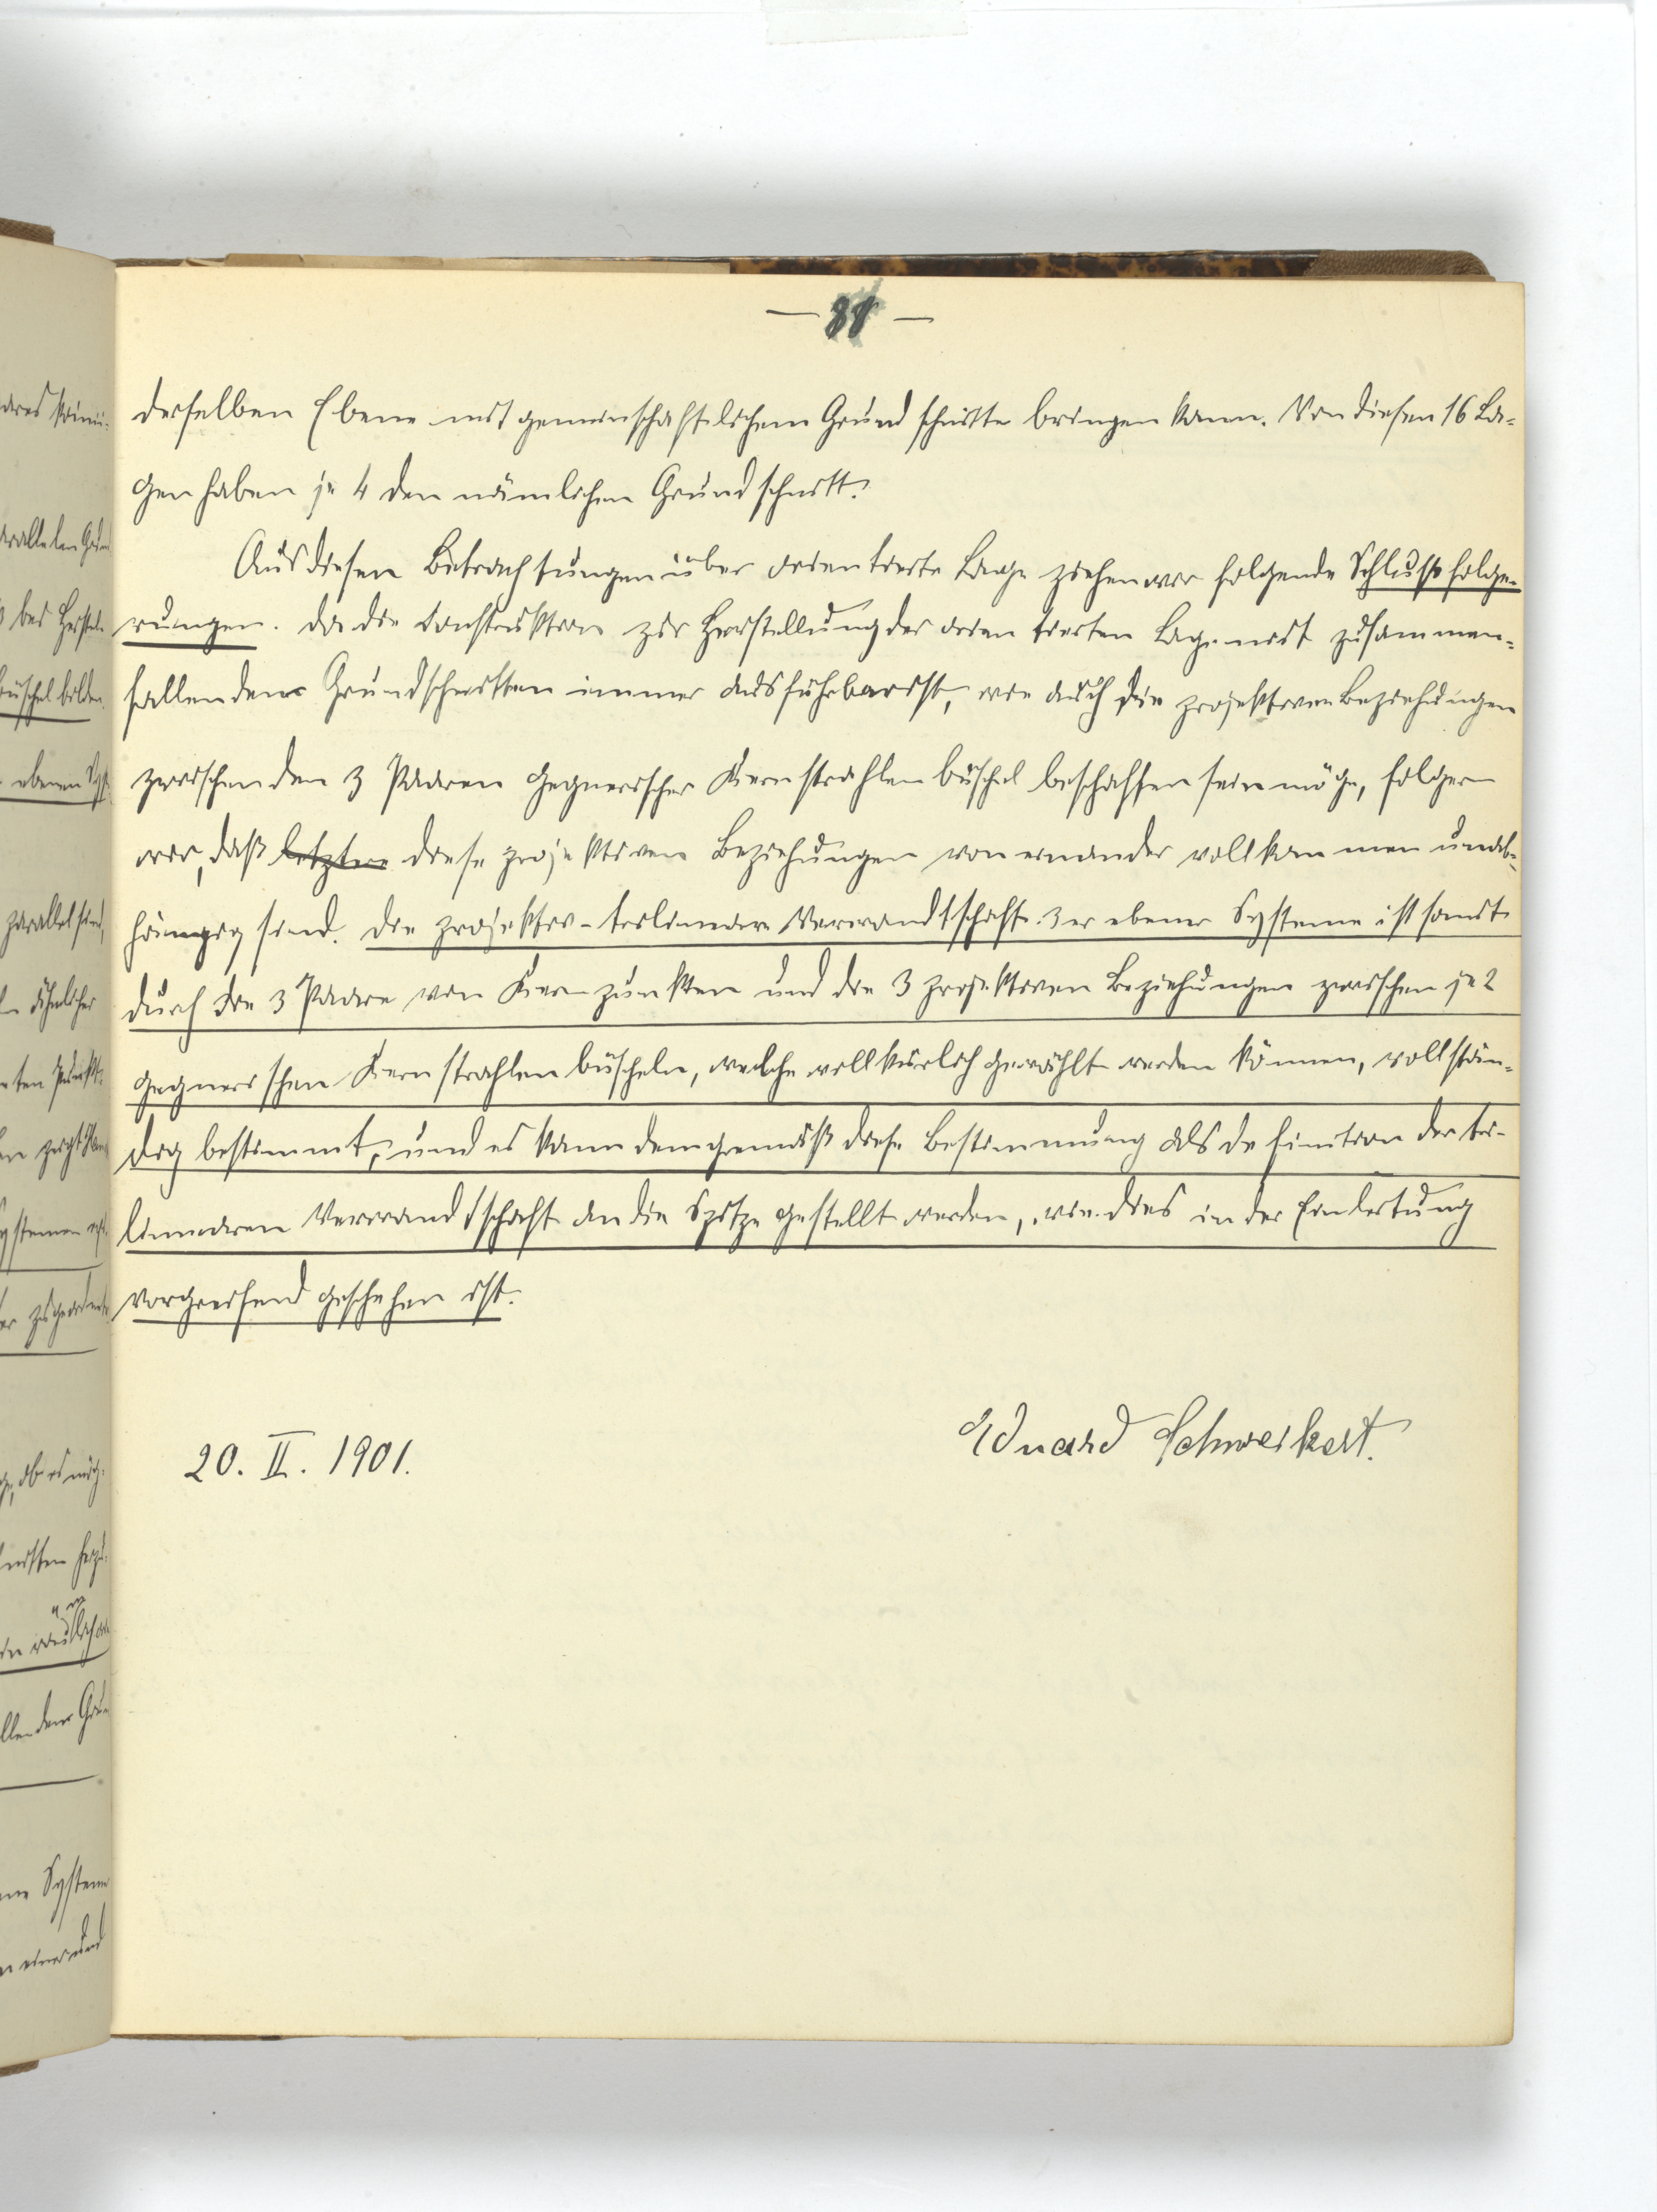 derselben Ebene mit gemeinschaftlichem Grundschnitte bringen kann. Von diesen 16 La-
gen haben je 4 den nämlichen Grundschnitt.
Aus diesen Betrachtungen über orientierte Lage ziehen wir folgende Schlussfolge-
rungen. Da die Construktion zur Herstellung der orientierten Lage mit zusammen-
fallenden Grundschnitten immer ausführbar ist, wie auch die projektiven Beziehungen
zwischen den 3 Paaren gegnerischer Kernstrahlenbüschel beschaffen sein möge, folgern
wir, daß letztere diese projektiven Beziehungen von einander vollkommen unab-
hängig sind. Die projektiv-trilineare Verwandtschaft 3er ebener Systeme ist somit
durch die 3 Paare von Kernpunkten und die 3 projektiven Beziehungen zwischen je 2
gegnerischen Kernstrahlenbüscheln, welche willkürlich gewählt werden können, vollstän-
dig bestimmt, und es kann demgemäß diese Bestimmung als Definition der tri-
linearen Verwandtschaft an die Spitze gestellt werden, wie dies in der Einleitung
vorgreifend geschehen ist.
20. II. 1901.
Eduard Schweikert.